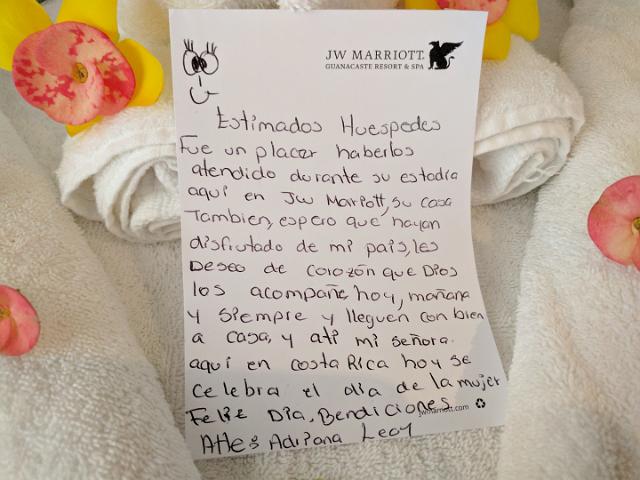 JW MARRIOTT
GUANACASTE RESORT & SPA
Estimados Huespedes
Fue un placer haberlos
atendido durante su estadia
aquí en JW Marriott, su casa
Tambien, espero que hayan
disfrutado de mi pais, les
Deseo de corozón que Dios
los acompañe hoy, mañana
y siempre y lleguen con bien
a casa, y ati mi señora.
aquí en costa Rica hoy se
celebra el dia de la mujer
Feliz Dia, Bendiciones
jwmarriott.com
Atte: Adriana Leoy